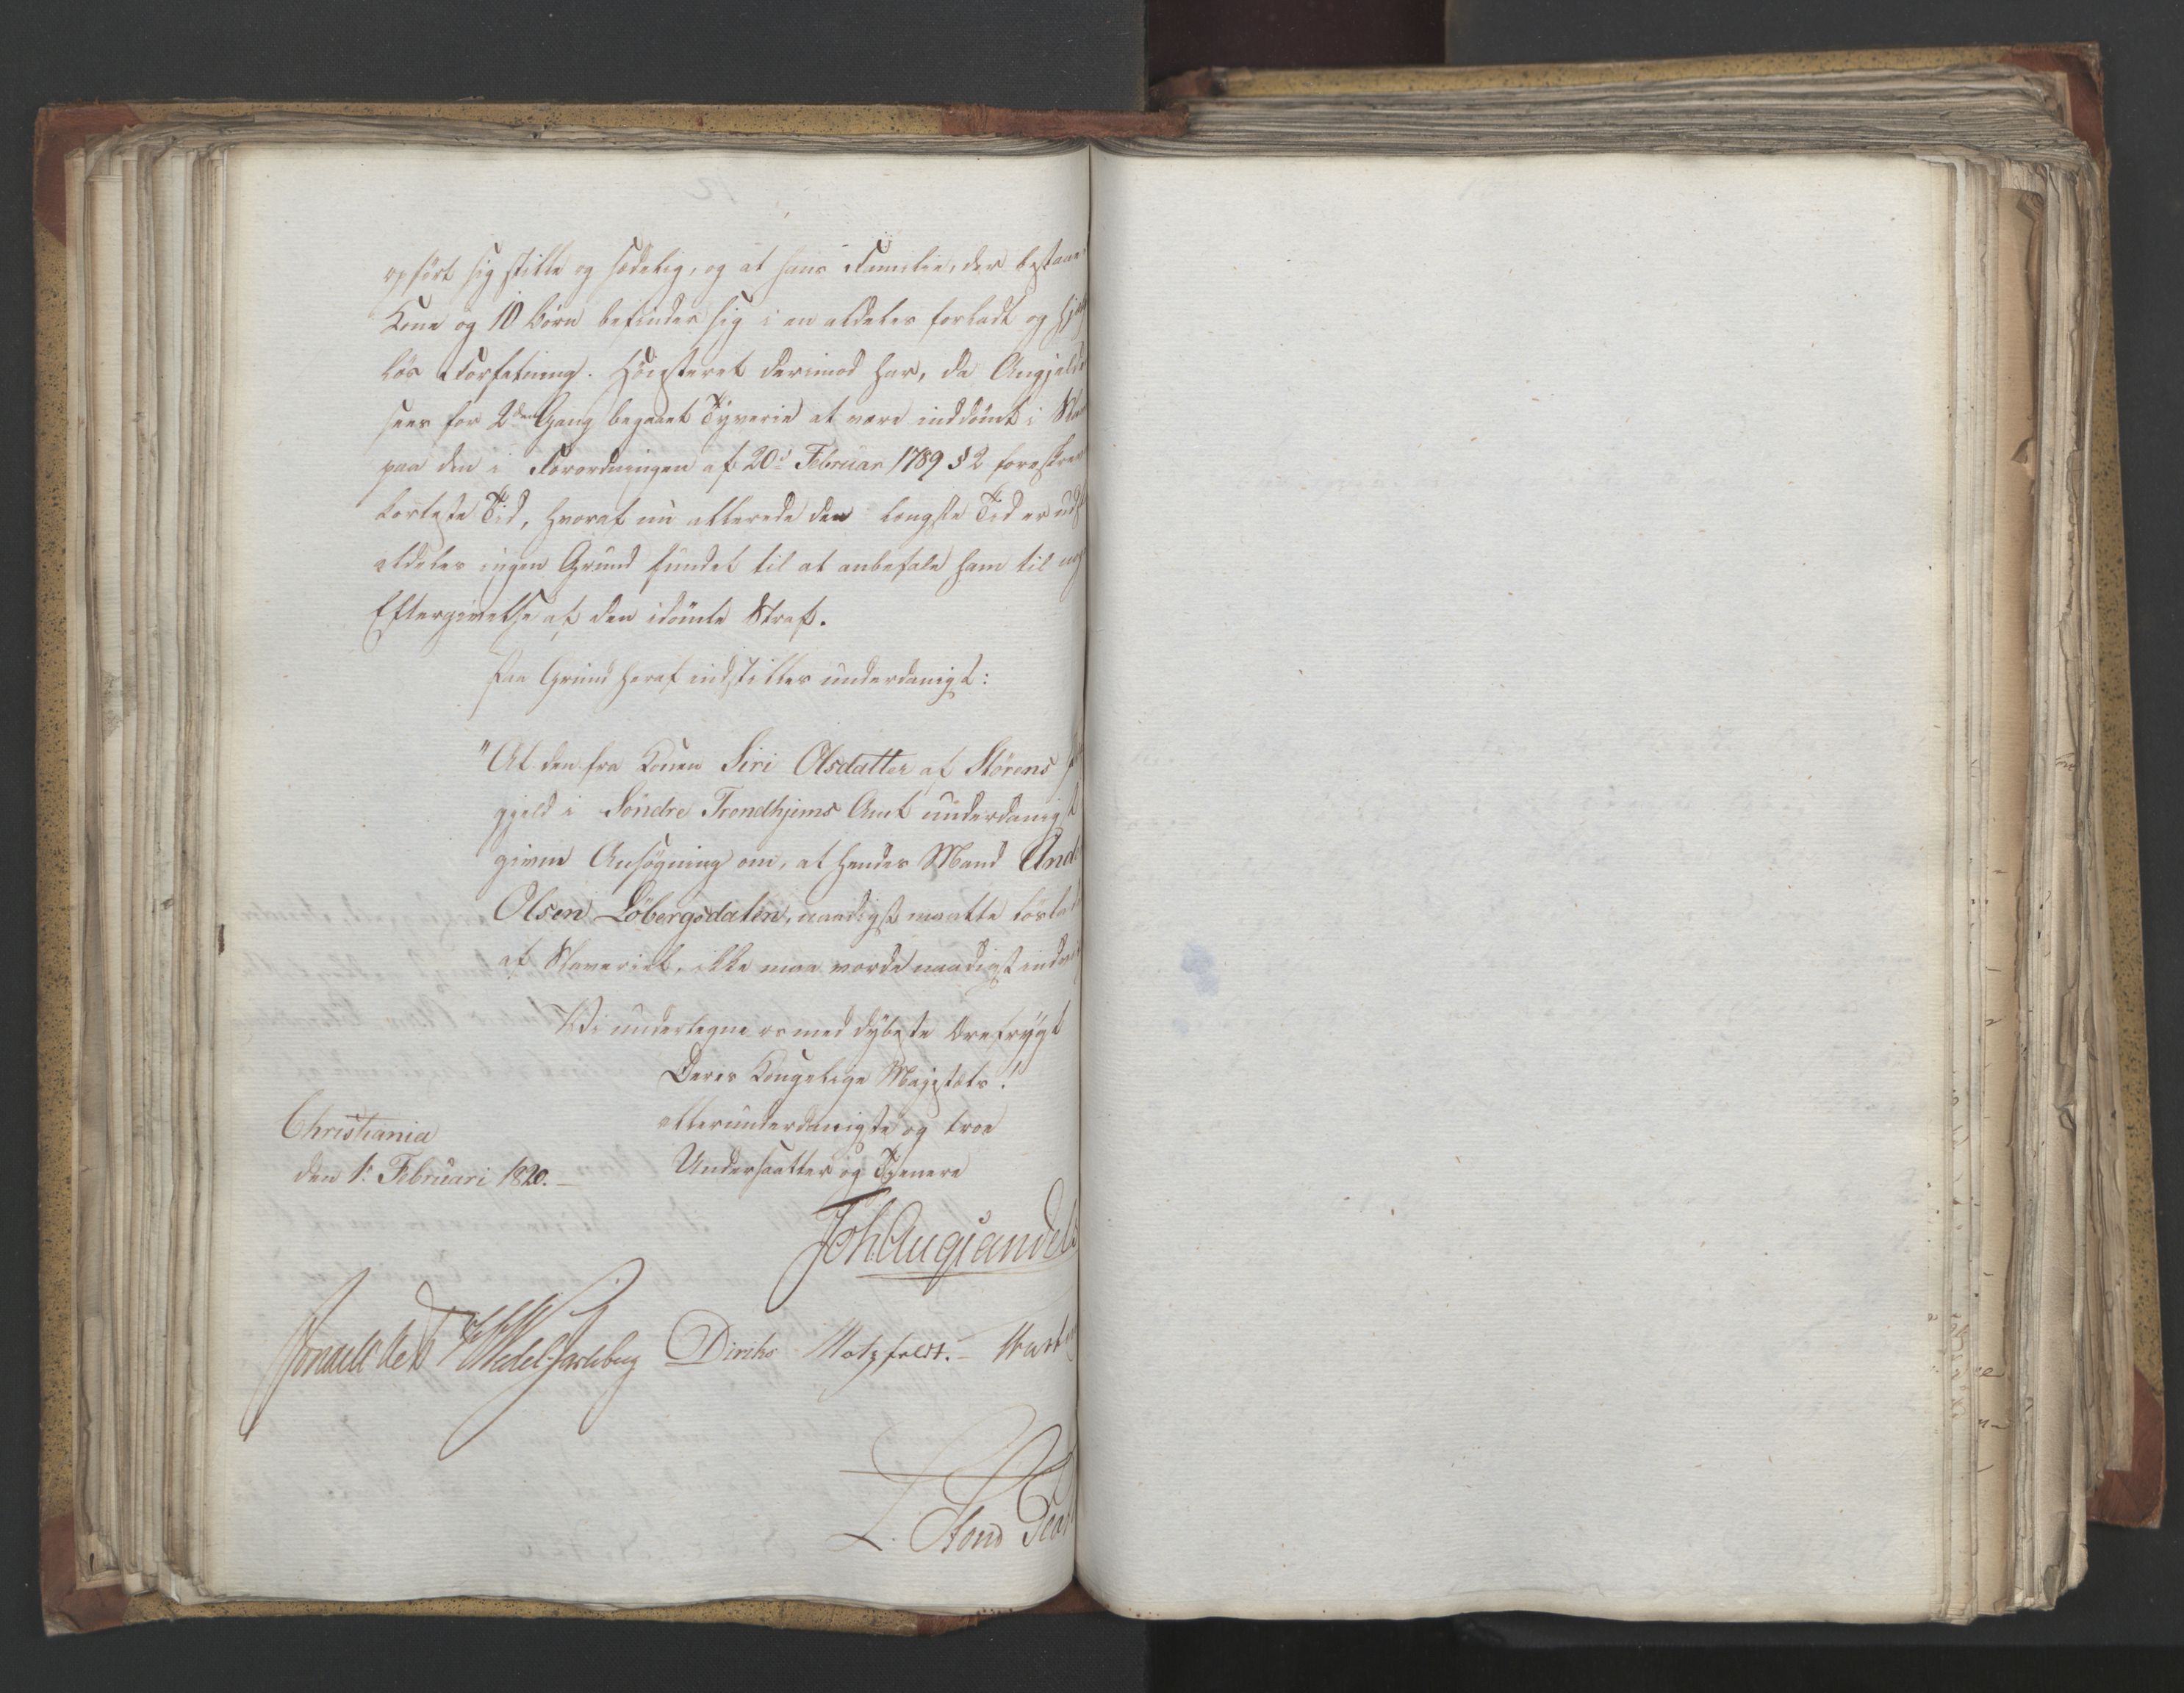 opført sig stille og sædelig, og at hans Familie, der bestaaer
Kone og 10 Børn befinder sig i en aldeles forladt og hjelp
løs Forfatning. Høiesteret derimod har, da Angjeld
sees for 2den Gang begaaet Tyverie at være inddømt i Sla
paa den i Forordningen af 20de Februar 1789 § 2 foreskrev
korteste Tid, hvoraf nu allerede den længste Tid er uds
aldeles ingen Grund fundet til at anbefale ham til nog
Eftergivelse af den idømte Straf.
Paa Grund heraf indstilles underdanigst:
"At den fra Konen Siri Olsdatter af Störens
gjeld i Söndre Trondhjems Amt underdanigst
given Ansøgning om, at hendes Mand And
Olsen Löbergsdalen, naadigst maatte løslad
af Slaveriet, ikke maa vorde naadigst indvil
Vi undertegne os med dybeste Ærefrygt
Deres Kongelige Majestæts!
allerunderdanigste og troe
Undersaatter og Tjenere
Christiania
den 1. Februari 1820.
Joh. Aug Sandels
Wedel-Jarlsberg Diriks Motzfeldt.